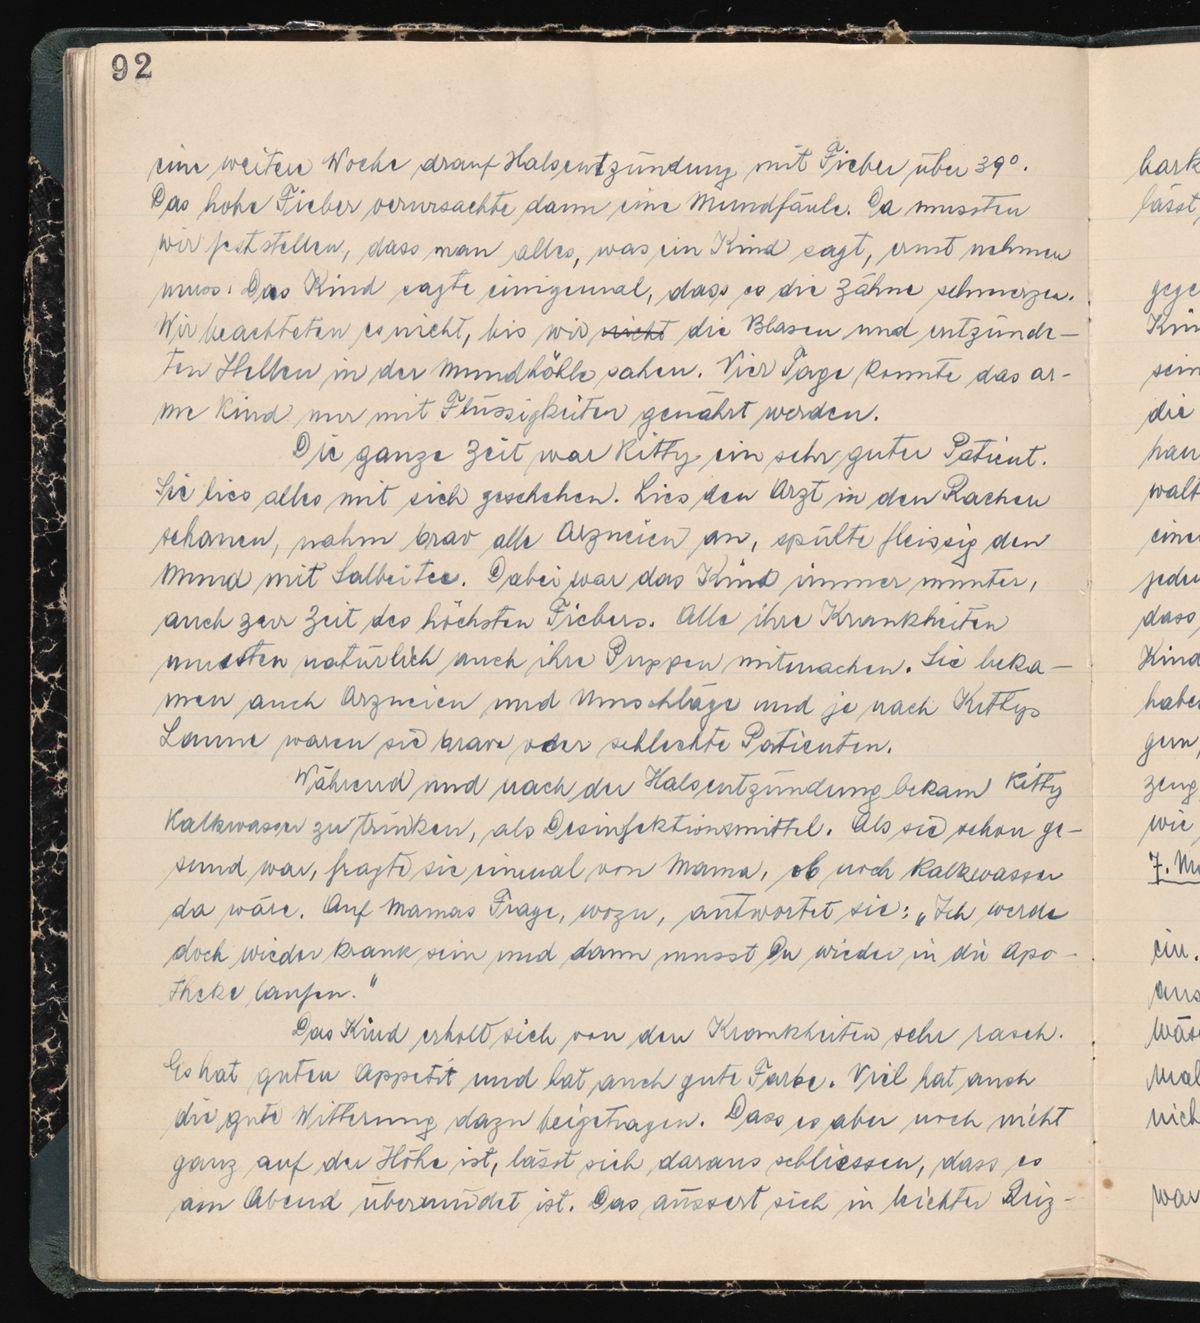 92
eine weitere Woche drauf Halsentzündung mit Fieber über 39°.
Das hohe Fieber verursachte dann eine Mundfäule. Da mussten
wir feststellen, dass man alles, was ein Kind sagt, ernst nehmen
muss. Das Kind sagte einigemal, dass es die Zähne schmerzen.
Wir beachteten es nicht, bis wir nicht die Blasen und entzünde-
ten Stellen in der Mundhöhle sahen. Vier Tage konnte das ar-
me Kind nur mit Flüssigkeiten genährt werden.
Die ganze Zeit war Kitty ein sehr guter Patient.
Sie lies alles mit sich geschehen. Lies den Arzt in den Rachen
schauen, nahm brav alle Arzneien an, spülte fleissig den
Mund mit Salbeitee. Dabei war das Kind immer munter,
auch zur Zeit des höchsten Fiebers. Alle ihre Krankheiten
mussten natürlich auch ihre Puppen mitmachen. Sie beka-
men auch Arzneien und Umschläge und je nach Kittys
Laune waren sie brave oder schlechte Patienten.
Während und nach der Halsentzündung bekam Kitty
Kalkwasser zu trinken, als Desinfektionsmittel. Als sie schon ge-
sund war, fragte sie einmal von Mama, ob noch Kalkwasser
da wäre. Auf Mamas Frage, wozu, antwortet sie: „Ich werde
doch wieder krank sein und dann musst Du wieder in die Apo-
theke laufen."
Das Kind erholt sich von den Krankheiten sehr rasch.
Es hat guten Appetit und hat auch gute Farbe. Viel hat auch
die gute Witterung dazu beigetragen. Dass es aber noch nicht
ganz auf der Höhe ist, lässt sich daraus schliessen, dass es
am Abend übermüdet ist. Das äussert sich in leichter Reiz-
bark
lässt
gege
sein
die
walt
eine
dass
Kind
habe
zeug
wie
ein.
aus
mal
nich
war